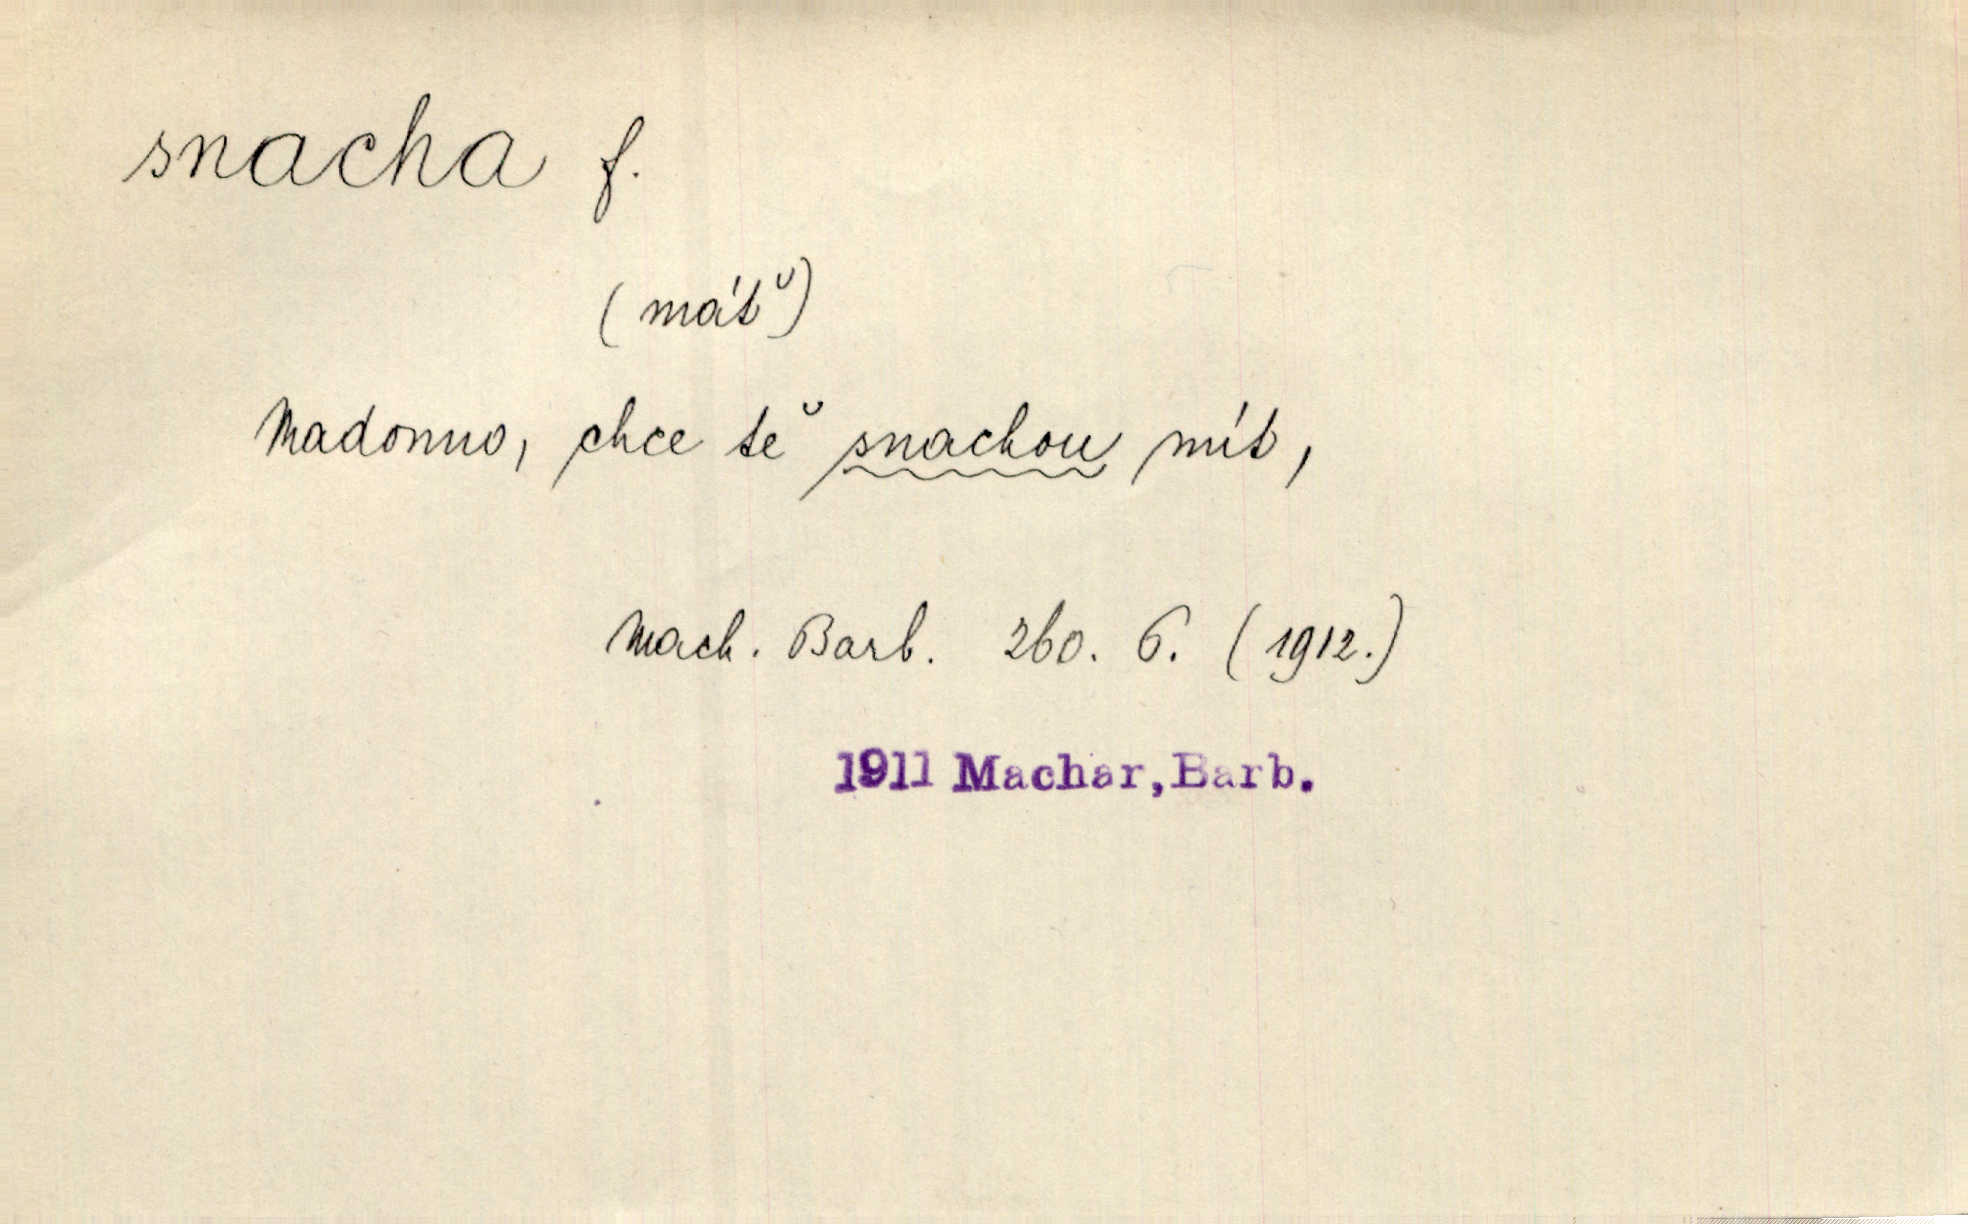 snacha f.
(máť)
Madonno, chce tě snachou mít,
Mach. Barb. 260. 6. (1912.)
1911 Machar, Barb.